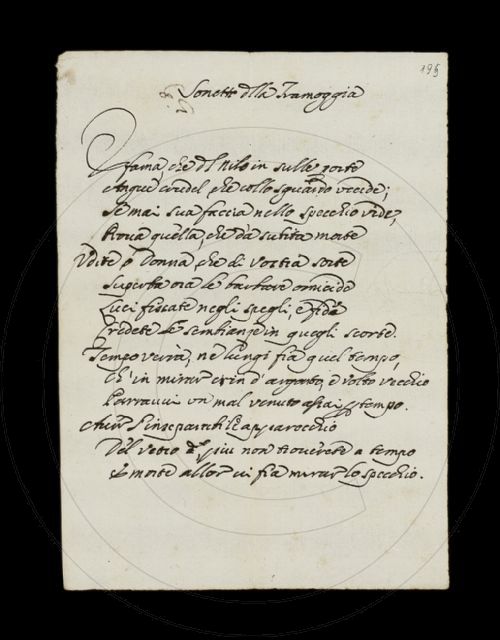 195
Sonetto della Tramoggia
È fama, che del Nilo in sulle porte
Angue crudel, che collo sguardo uccide;
Se mai sua faccia nello specchio vide,
Prova quella, che dà subita morte
Udite o Donna, che di vostra sorte
Superba ora le barbare omicide
Luci fissate negli spegli, e fide
Credete le sembianze in quegli scorte.
Tempo verrà, nè lungi fia quel tempo,
Ch' in mirar crin d' argento, e volto vecchio
Parravvi un mal venuto assai tempo.
apparecchio
Del vetro più non troverete a tempo
E morte allor vi fia mirar lo specchio.